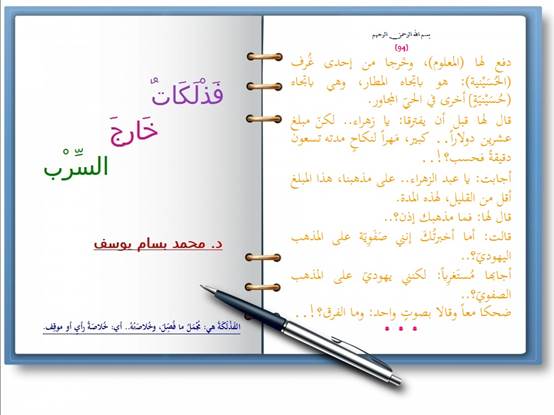 بسم الله الرحمن الرحيم
(94)
دفع لها (المعلوم)، وخرجا من إحدى غُرف
(الحُسَيْنية): هو باتجاه المطار، وهي باتجاه
(حُسَيْنيّةٍ) أخرى في الحيّ المجاور.
قال لها قبل أن يفترقا: يا زهراء.. لكنّ مبلغ
عشرين دولاراً.. كبير، مَهراً لنكاحٍ مدته تسعون
دقيقةً فحسب؟!..
أجابت: يا عبد الزهراء.. على مذهبنا، هذا المبلغ
أقل من القليل، لهذه المدة.
قال لها: فما مذهبك إذن؟..
قالت: أما أخبرتُكَ إنني صَفَوِيّة على المذهب
اليهوديّ؟..
أجابها مُستَغرِباً: لكنني يهوديّ على المذهب
الصفويّ؟..
ضحكا معاً وقالا بصوتٍ واحد: وما الفرق؟!..
فَذْلَكَاتٌ
خَارِجَ
السِّرْب
د. محمد بسام يوسف
الفَذْلَكَةُ هي: مُجْمَلُ ما فُصِّلَ، وخُلاصَتُهُ.. أي: خُلاصَةُ رأيٍ أو موقِف.